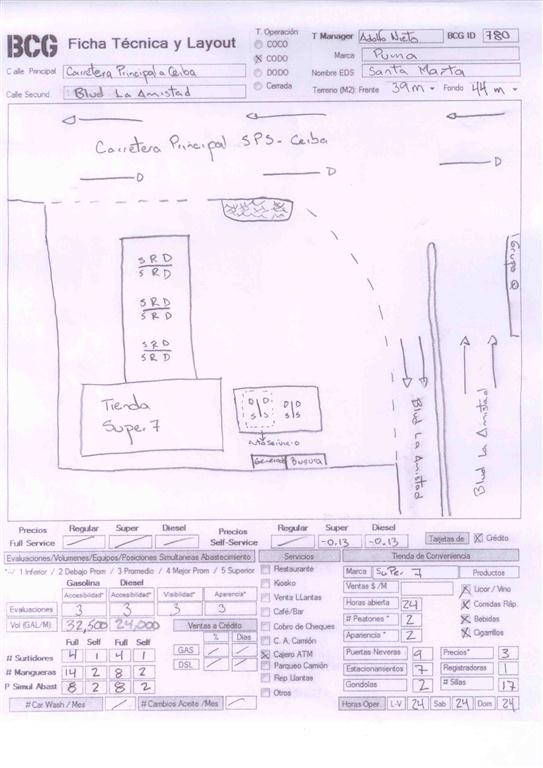 BCG Ficha Técnica y Layout
T. Operación
COCO
CODO
DODO
Cerrada
T Manager Adolfo Nieto BCG ID 780
Marca Puma
Nombre EDS Santa Marta
Terreno (M2): Frente 39 m Fondo 44 m
Calle Principal Carretera Principal a Ceiba
Calle Secund. Blud La Amistad
Carretera Principal SPS - Ceiba
Grupo Q
S R D
S R D
S R D
S R D
S R D
S R D
Tienda
Super 7
D D
S S
D D
S S
Autoservicio
Generador
Basura
Blud La Amistad
Blud La Amistad
Precios Regular Super Diesel
Full Service
Precios Regular Super Diesel
Self-Service -0.13 -0.13
Tarjetas de X Crédito
Evaluaciones/Volumenes/Equipos/Posiciones Simultaneas Abastecimiento
*--/ 1 Inferior / 2 Debajo Prom / 3 Promedio / 4 Mejor Prom / 5 Superior
Gasolina Diesel
Accesibilidad* Accesibilidad* Visibilidad* Apariencia*
Evaluaciones 3 3 3 3
Vol (GAL/M): 32,500 24,000
Ventas a Crédito
% Dias
GAS
DSL
Full Self Full Self
# Surtidores 4 1 4 1
# Mangueras 14 2 8 2
P Simul Abast 8 2 8 2
# Car Wash / Mes
# Cambios Aceite /Mes
Servicios
Restaurante
Kiosko
Venta LLantas
Café/Bar
Cobro de Cheques
C. A. Camión
X Cajero ATM
Parqueo Camión
Rep Llantas
Otros
Tienda de Conveniencia
Marca Super 7
Ventas $ /M
Horas abierta 24
# Peatones * 2
Apariencia * 2
Productos
X Licor / Vino
X Comidas Ráp.
X Bebidas
X Cigarrillos
Puertas Neveras 9 Precios* 3
Estacionamientos 7 Registradoras 1
Gondolas 2 # Sillas 17
Horas Oper. L-V 24 Sab 24 Dom 24